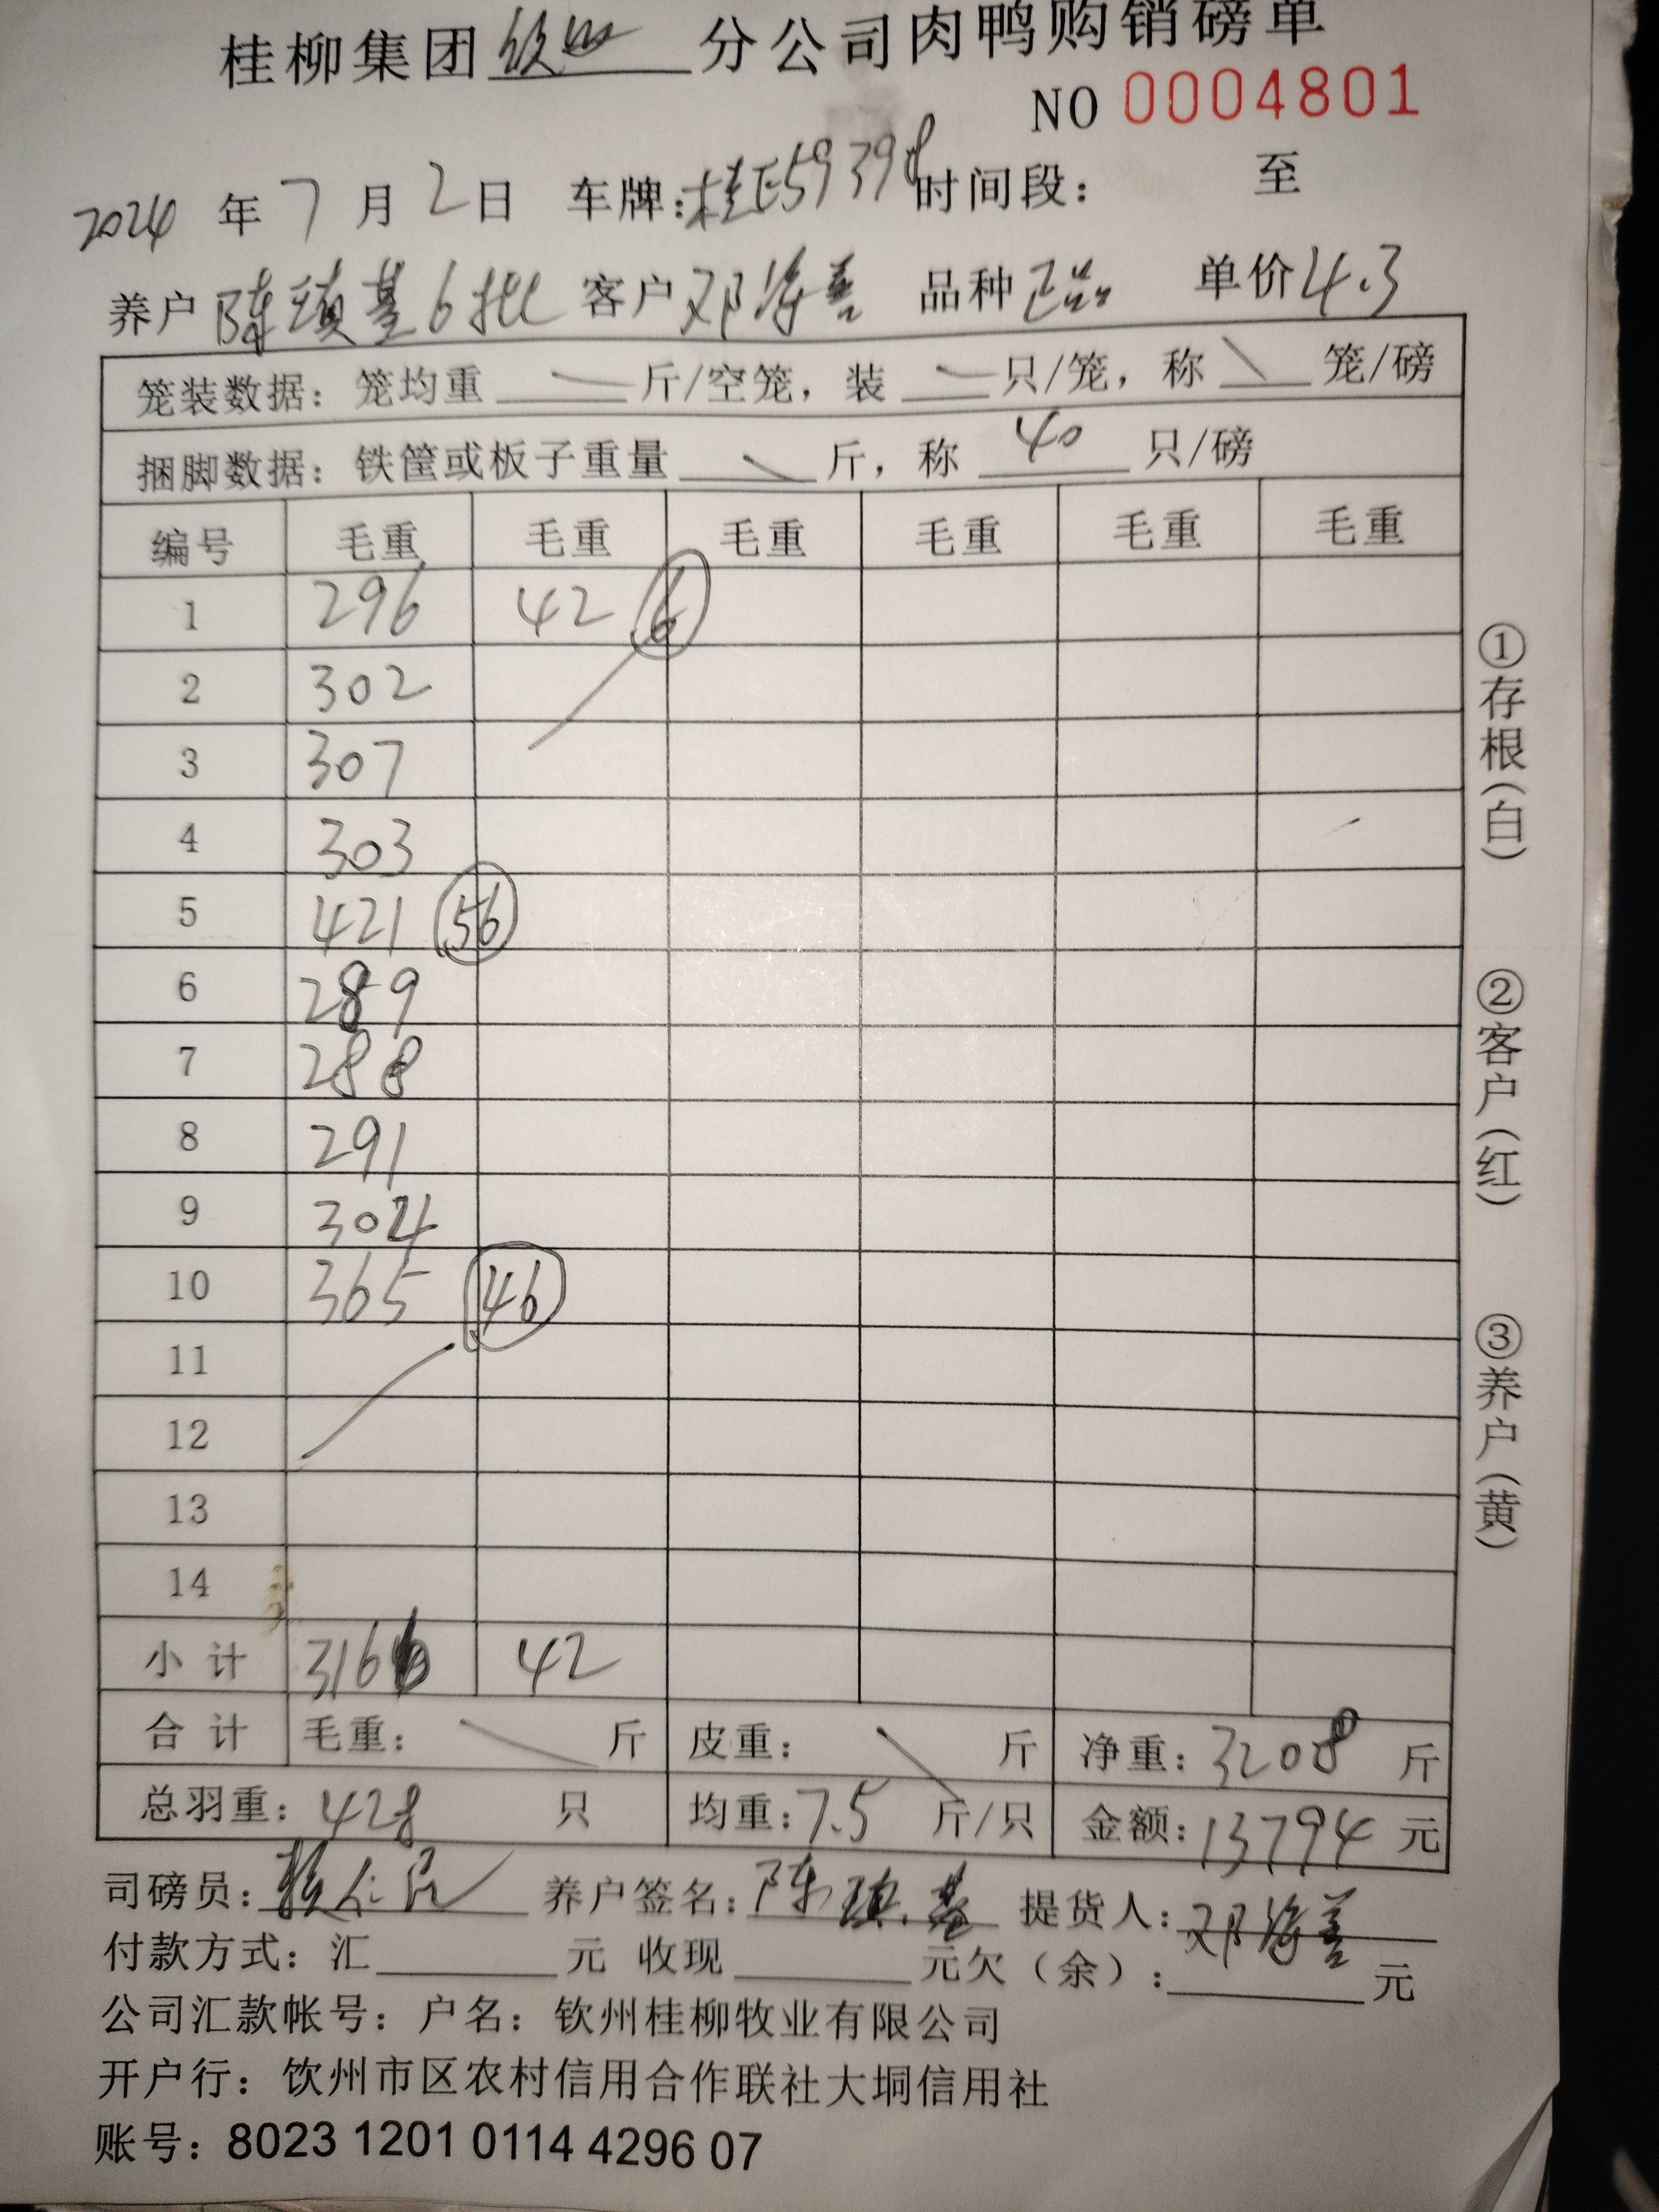 桂柳集团钦州分公司肉鸭购销磅单
NO 0004801
2024 年 7 月 2 日 车牌:桂E59398 时间段: 至
养户 陈瑱基6批 客户 邓海善 品种 正品 单价 4.3
笼装数据: 笼均重 斤/空笼, 装 只/笼, 称 笼/磅
捆脚数据: 铁筐或板子重量 斤, 称 40 只/磅
编号 毛重 毛重 毛重 毛重 毛重 毛重
1 296 42 6
2 302
3 307
4 303
5 421 56
6 289
7 288
8 291
9 304
10 365 46
11
12
13
14
小计 3166 42
合计 毛重: 斤 皮重: 斤 净重: 3208 斤
总羽重: 428 只 均重: 7.5 斤/只 金额: 13794 元
司磅员: 养户签名: 陈瑱基 提货人: 邓海善
付款方式: 汇 元 收现 元欠(余): 元
公司汇款帐号: 户名: 钦州桂柳牧业有限公司
开户行: 饮州市区农村信用合作联社大垌信用社
账号: 8023 1201 0114 4296 07
①存根(白)
②客户(红)
③养户(黄)